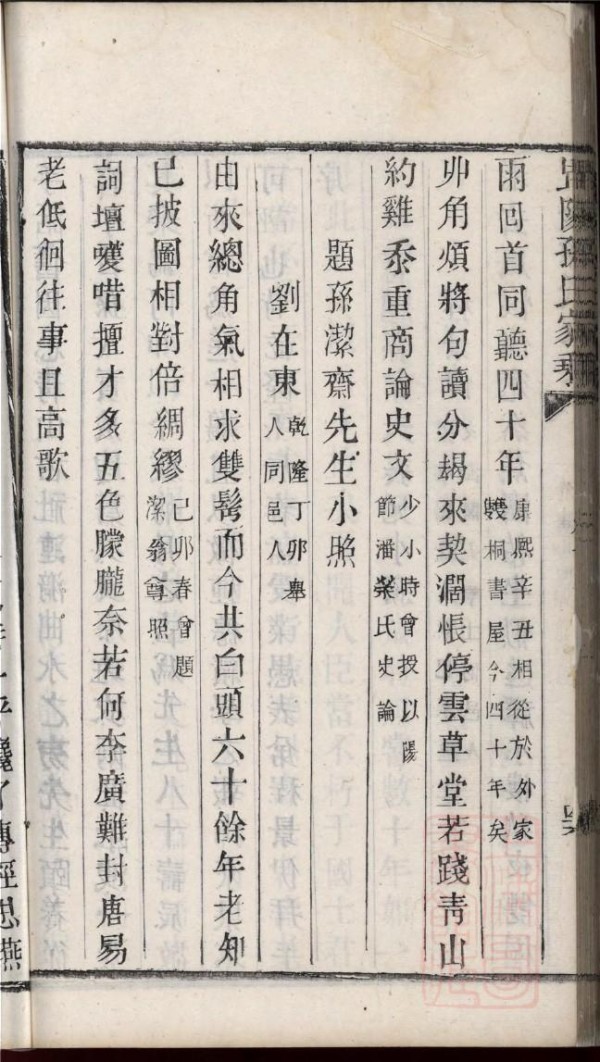 雨回首同聽四十年康熙辛丑相從於外家雙桐書屋今四十年矣
丱角煩將句讀分朅來契濶悵停雲草堂若踐靑山
約雞黍重商論史文少小時曾授以陽節潘榮氏史論
題孫潔齋先生小照
劉在東乾隆丁卯舉人同邑人
由來總角氣相求雙髩而今共白頭六十餘年老知
已披圖相對倍綢繆己卯春曾題潔翁尊照
詞壇嘆唶擅才多五色朦朧奈若何李廣難封唐易
老低徊往事且高歌